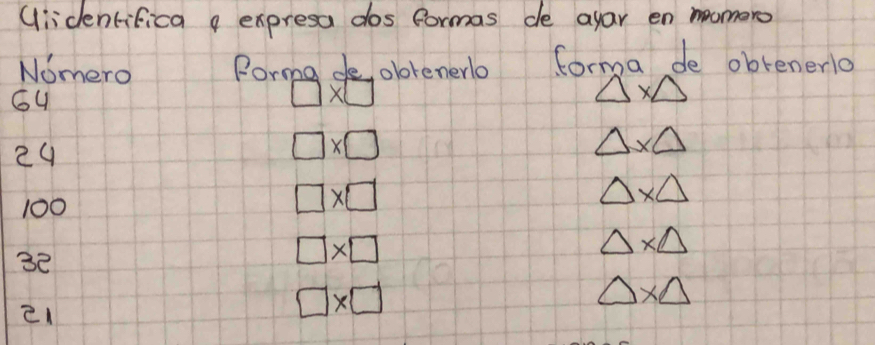 4) identifica e expresa dos formas de ayar en número
Número Forma de obtenerlo forma de obtenerlo
64 □x□ △x△
24 □x□ △x△
100 □x□ △x△
32 □x□ △x△
21 □x□ △x△